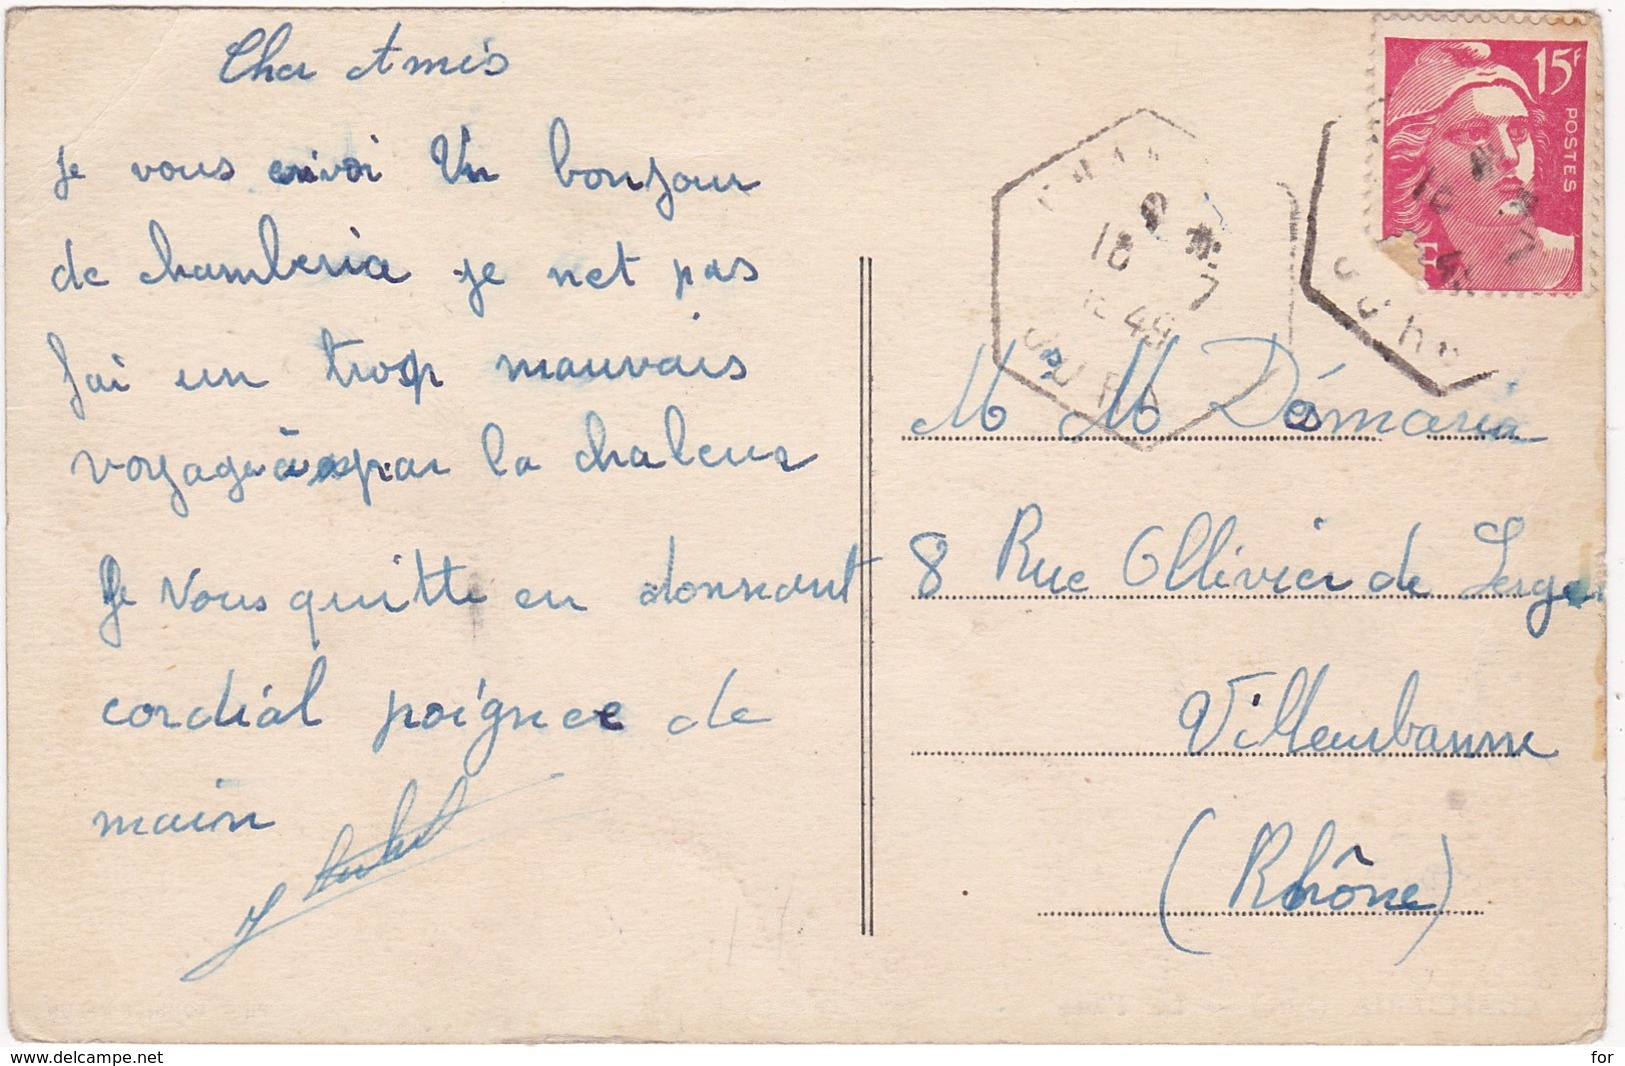 Cher Amis
Je vous envoi Un bonjour
de chamberia je net pas
fai un trop mauvais
voyage par la chaleur
Je Vous quitte en donnant
cordial poignee de
main
15F
POSTES
18
49
JURA
JURA
M M Désmaria
8 Rue Ollivier de
Villeurbanne
(Rhône)
www.delcampe.net
for